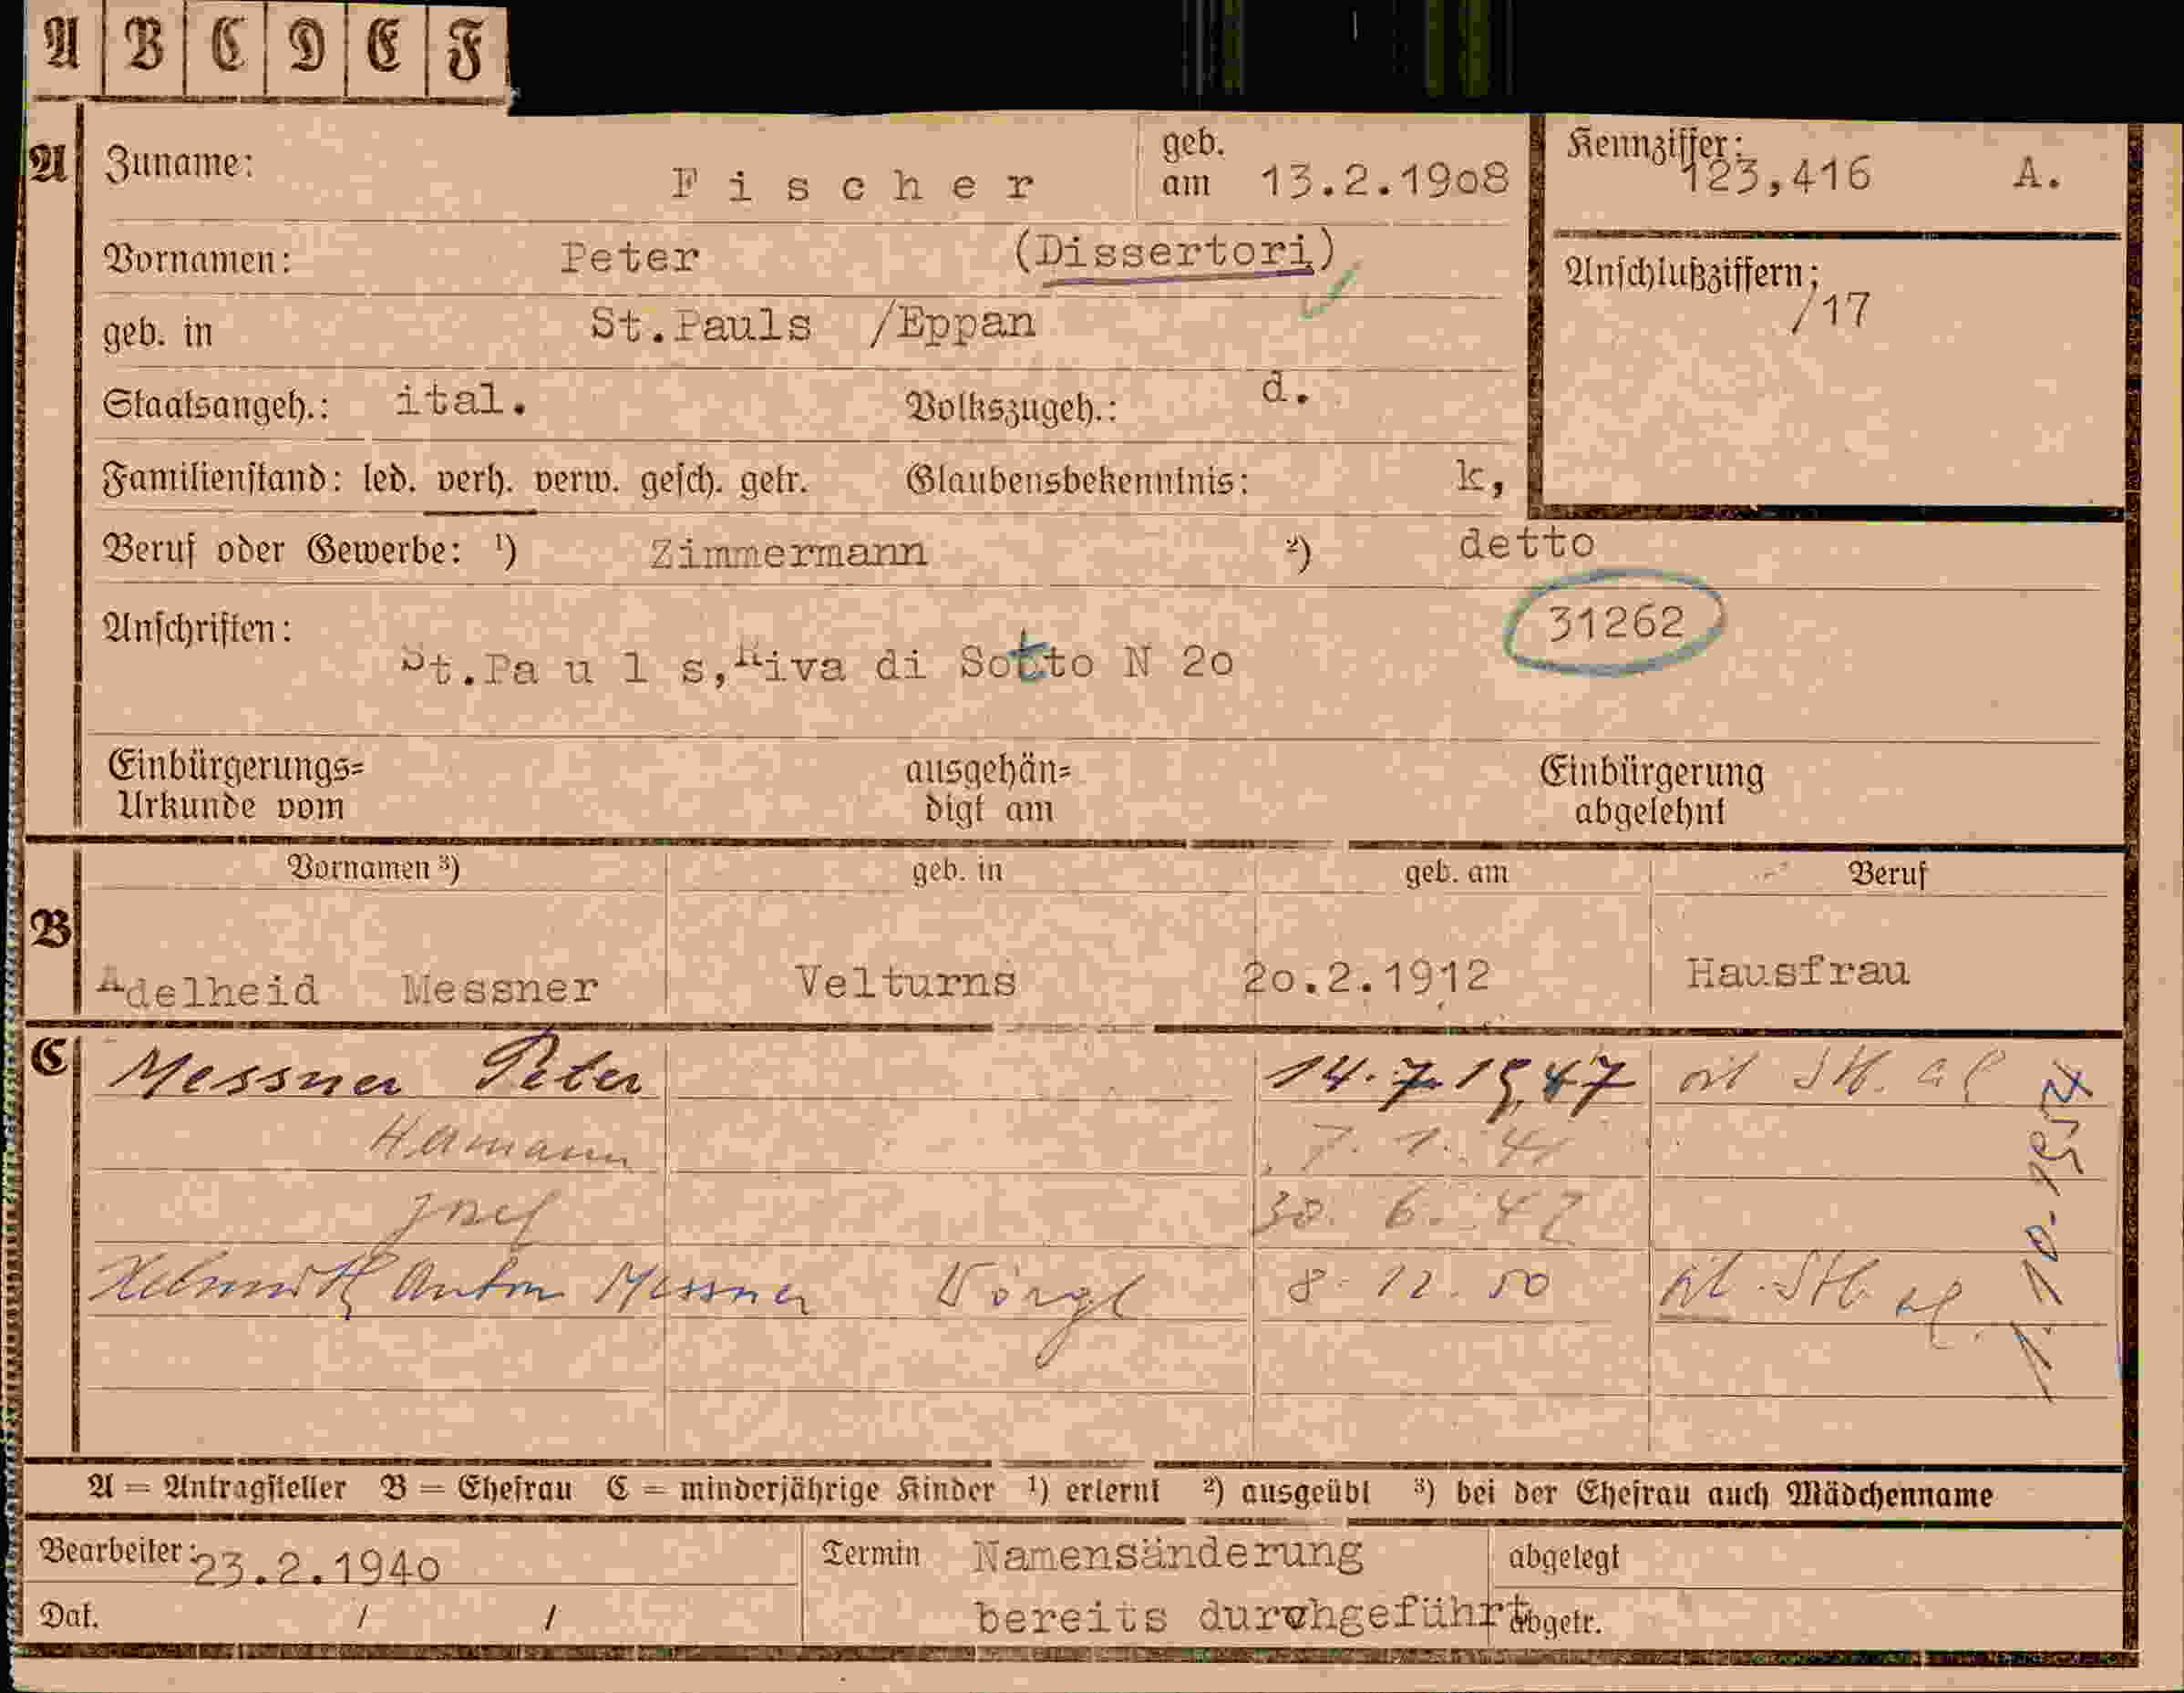 A B C D E F
A Zuname: Fischer geb. am 13.2.1908 Kennziffer: 123,416 A.
Vornamen: Peter (Dissertori) Anschlußziffern: /17
geb. in St.Pauls /Eppan
Staatsangeh.: ital. Volkszugeh.: d.
Familienstand: led. verh. verw. gesch. getr. Glaubensbekenntnis: k,
Beruf oder Gewerbe: ¹) Zimmermann ²) detto
31262
Anschriften: St.Pa u l s, Riva di Sotto N 20
Einbürgerungs= Urkunde vom ausgehän= digt am Einbürgerung abgelehnt
Vornamen ³) geb. in geb. am Beruf
B Adelheid Messner Velturns 20.2.1912 Hausfrau
C Messner Peter 14.7.1947
7. 1. 41
Josef 30. 6. 42
Helmuth Anton Messner Wörgl 8. 12. 50
1. 10. 1954
A = Antragsteller B = Ehefrau C = minderjährige Kinder ¹) erlernt ²) ausgeübt ³) bei der Ehefrau auch Mädchenname
Bearbeiter: 23.2.1940 Termin Namensänderung abgelegt
Dat. / / bereits durchgeführt abgetr.